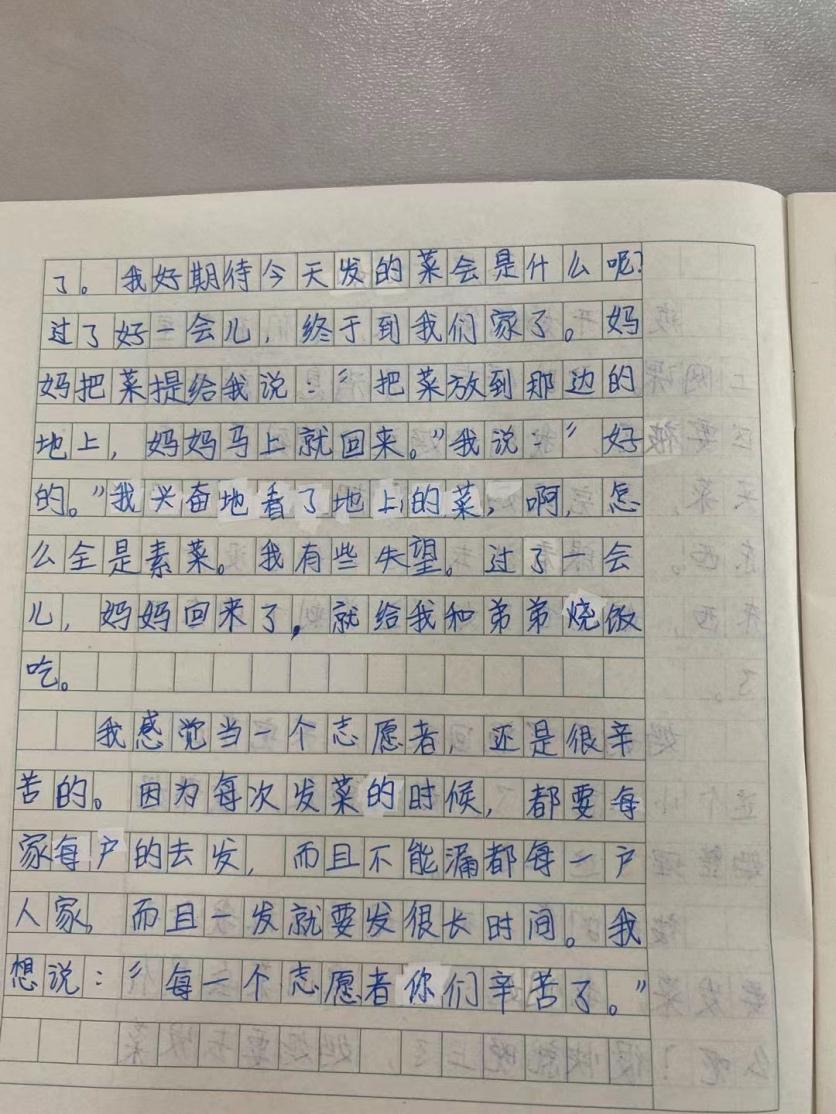 了。我好期待今天发的菜会是什么呢?
过了好一会儿，终于到我们家了。妈
妈把菜提给我说：“把菜放到那边的
地上，妈妈马上就回来。”我说：“好
的。”我兴奋地看了地上的菜，啊，怎
么全是素菜。我有些失望。过了一会
儿，妈妈回来了，就给我和弟弟烧饭
吃。
我感觉当一个志愿者，还是很辛
苦的。因为每次发菜的时候，都要每
家每户的去发，而且不能漏都每一户
人家，而且一发就要发很长时间。我
想说：“每一个志愿者你们辛苦了。”